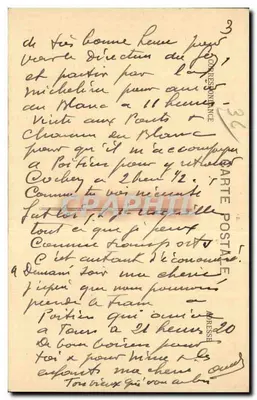 3
de très bonne heure pour
voir le Direction du
et partir par la
micheline pour
du Blanc a 11 heures
Visite aux Ponts &
Chaussées du Blanc
pour qu'il m'accompagne
a Poitiers pour y
Cochery a 2 heu ½.
Comme tu vois
tout ce que j'peux
Comme transports
C'est autant d'économisé.
Demain soir ma cherie
j'espère que nous pourrons
prendre le train a
Poitiers qui arrive
a Tours a 21 heures 20
De bons baisers pour
toi & pour mime & les
enfants ma cherie
Ton vieux qui
36
CORRESPONDANCE
CARTE POSTALE
ADRESSE
CPAPHIL